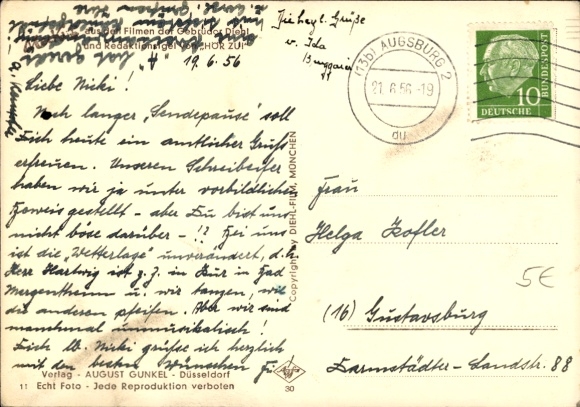 aus den Filmen der Gebrüder Diehl
und Redaktionsigel von "HÖR ZU!"
19.6.56
Liebe Nicki!
Nach langer "Sendepause" soll
Dich heute ein amtlicher Gruß
erfreuen. Unseren Schreibeifer
haben wir ja unter vorbildlichen
Beweis gestellt - aber Du bist uns
nicht böse darüber - !? Bei uns
ist die "Wetterlage" unverändert, d.h.
Herr Hartwig ist z.Z. in Kur in Bad
Mergentheim u. wir tanzen, wie
die anderen pfeifen. Aber wir sind
manchmal unmusikalisch!
Dich lb. Nicki grüße ich herzlich
mit den besten Wünschen für
Verlag - AUGUST GUNKEL - Düsseldorf
11 Echt Foto - Jede Reproduktion verboten
30
Copyright by DIEHL-FILM, MÜNCHEN
Agfa
Herzl. Grüße
v. Ida
(13b) AUGSBURG 2
21.6.56-19
du
10
DEUTSCHE
BUNDESPOST
Frau
Helga Hofler
5€
(16) Gustavsburg
Darmstädter-Landstr. 88